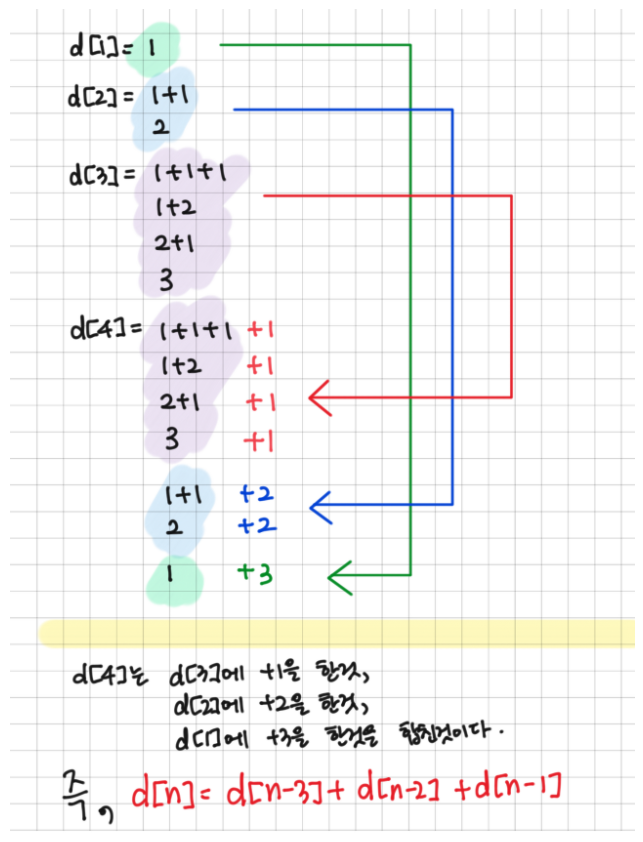 d[1]= 1
d[2]= 1+1
2
d[3]= 1+1+1
1+2
2+1
3
d[4]= 1+1+1 +1
1+2 +1
2+1 +1
3 +1
1+1 +2
2 +2
1 +3
d[4]는 d[3]에 +1을 한것,
d[2]에 +2을 한것,
d[1]에 +3을 한것을 합친것이다.
즉, d[n]= d[n-3]+ d[n-2] +d[n-1]